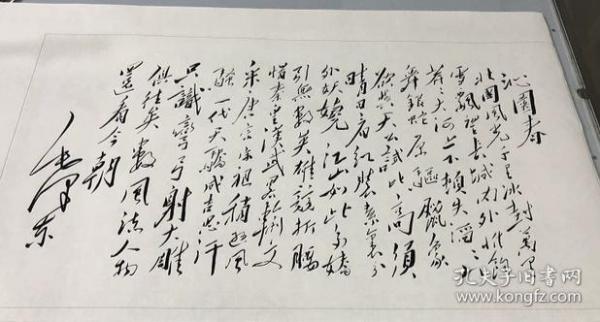 沁园春
北国风光千里冰封万里
雪飘望长城内外惟余
莽莽大河上下顿失滔滔山
舞银蛇原驱腊象
欲与天公试比高须
晴日看红装素裹分
外妖娆江山如此多娇
引无数英雄竞折腰
惜秦皇汉武略输文
采唐宗宋祖稍逊风
骚一代天骄成吉思汗
只识弯弓射大雕
俱往矣数风流人物
还看今朝
毛泽东
孔夫子旧书网
www.kongfz.com